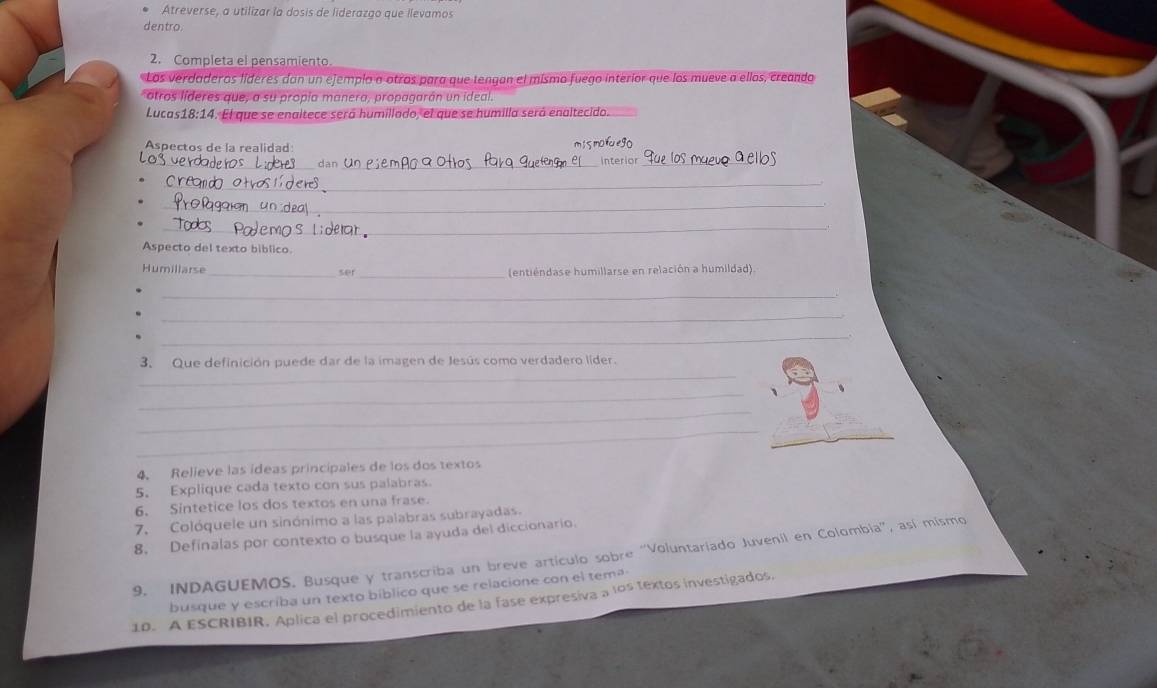 • Atreverse, a utilizar la dosis de liderazgo que llevamos
dentro.
2. Completa el pensamiento.
Los verdaderos líderes dan un ejemplo a otros para que tengan el mismo fuego interior que los mueve a ellos, creando
otros líderes que, a su propia manera, propagarán un ideal.
Lucas18:14. El que se enaltece será humillado, el que se humilla será enaltecido.
Aspectos de la realidad:
mismo fuego
Los verdaderos Lideres dan un esemplo a otros Para que tengan el interior que los mueve a ellos
• Creando otros líderes.
• Propagaran un ideal.
• Todos Podemos liderar.
Aspecto del texto bíblico.
Humillarse ____ ser ____ (entiéndase humillarse en relación a humildad).
•
•
•
3. Que definición puede dar de la imagen de Jesús como verdadero líder.
4. Relieve las ideas principales de los dos textos
5. Explique cada texto con sus palabras.
6. Sintetice los dos textos en una frase.
7. Colóquele un sinónimo a las palabras subrayadas.
8. Defínalas por contexto o busque la ayuda del diccionario.
9. INDAGUEMOS. Busque y transcriba un breve artículo sobre "Voluntariado Juvenil en Colombia", así mismo
busque y escriba un texto bíblico que se relacione con el tema.
10. A ESCRIBIR. Aplica el procedimiento de la fase expresiva a los textos investigados.